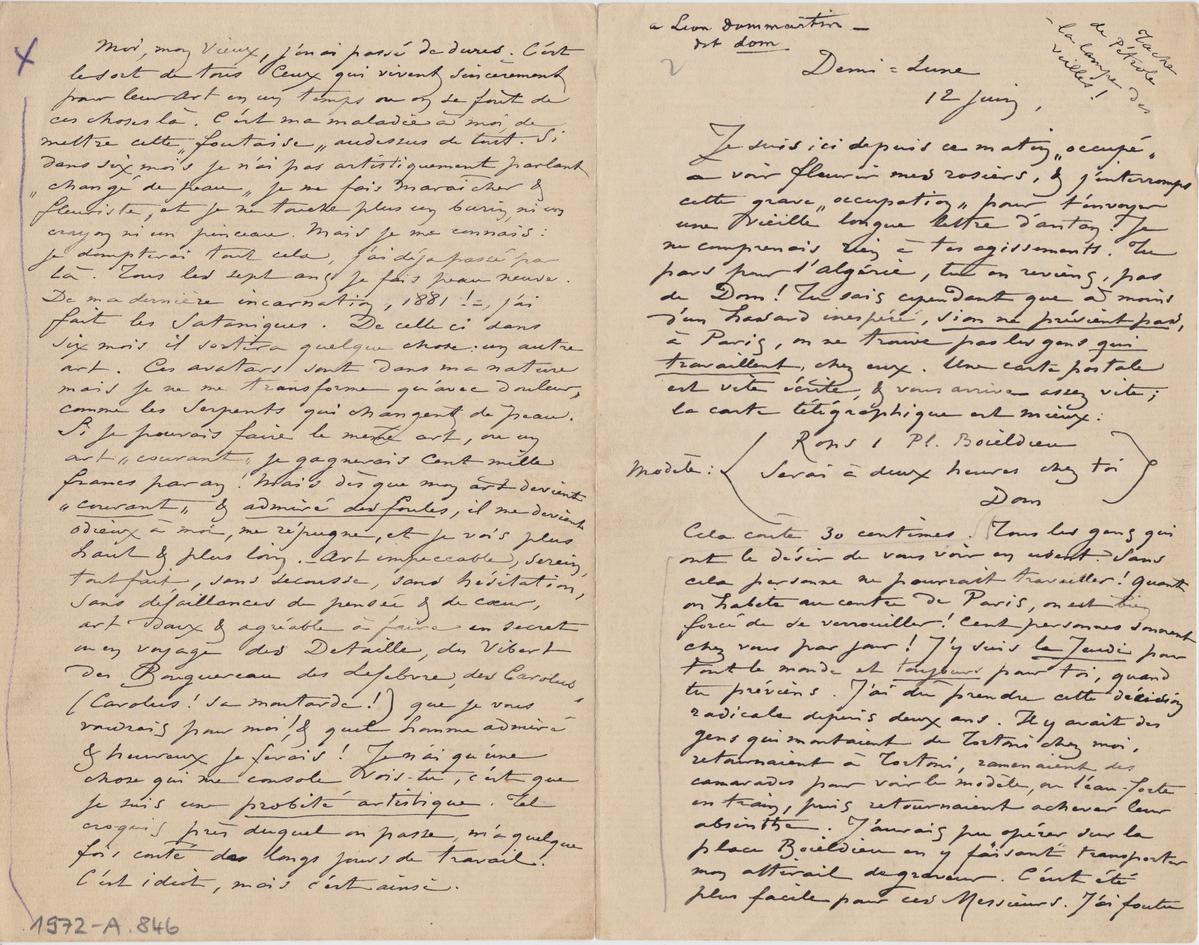 Moi, mon vieux, j'en ai passé de dures. C'est
le sort de tous ceux qui vivent sincèrement
pour leur art en un temps ou on se fout de
ces choses là. C'est ma maladie à moi de
mettre cette „foutaise„ audessus de tout. Si
dans six mois je n'ai pas artistiquement parlant
„changé de peau„ je me fais maraîcher &
fleuriste, et je ne touche plus un burin, ni un
crayon ni un pinceau. Mais je me connais:
je dompterai tout cela, j'ai déja passé par
là. Tous les sept ans je fais peau neuve.
De ma dernière incarnation, 1881 !=, j'ai
fait les Sataniques. De celle ci dans
six mois il sortira quelque chose: un autre
art. Ces avatars sont dans ma nature
mais je ne me transforme qu'avec douleur,
comme les serpents qui changent de peau.
Si je pouvais faire le même art, ou un
art „courant„ je gagnerais cent mille
francs par an! Mais dès que mon art devient
„courant„ & admiré des foules, il me devient
odieux à moi, me répugne, et je vois plus
haut & plus loin. Art impeccable, serein,
tout fait, sans secousse, sans hésitation,
sans défaillances de pensée & de cœur,
art doux & agréable à faire en secret
ou en voyage des Detaille, des Vibert
des Bouguereau des Lefebvre, des Carolus
(Carolus! sa moutarde!) que je vous
voudrais pour moi! & quel homme admiré
& heureux je ferais! Je n'ai qu'une
chose qui me console vois-tu, c'est que
je suis une probité artistique. Tel
croquis près duquel on passe, m'a quelque
fois coûté des longs jours de travail.
C'est idiot, mais c'est ainsi.
1972-A.846
a Léon Dommartin –
dit dom
2
Tache
de Pétrole
– la lampe des
veilles!
Demi=Lune
12 Juin,
Je suis ici depuis ce matin „occupé„
a voir fleurir mes rosiers, & j'interromps
cette grave „occupation„ pour t'envoyer
une vieille longue lettre d'antan! Je
ne comprenais rien à tes agissements. Tu
pars pour l'Algérie, tu en reviens, pas
de Dom! Tu sais cependant que à moins
d'un hasard inespéré, si on ne prévient pas,
à Paris, on ne trouve pas les gens qui
travaillent, chez eux. Une carte postale
est vite écrite, & vous arrive assez vite;
la carte télégraphique est mieux:
Modèle:
Rops 1 Pl. Boieldieu
Serai à deux heures chez toi
Dom
Cela coûte 30 centimes. Tous les gens qui
ont le désir de vous voir en usent. Sans
cela personne ne pourrait travailler! Quant
on habite au centre de Paris, on est bien
forcé de se verrouiller! Cent personnes sonnent
chez vous par jour! J'y suis le Jeudi pour
tout le monde et toujours pour toi, quand
tu préviens. J'ai du prendre cette décision
radicale depuis deux ans. Il y avait des
gens qui montaient de Tortoni chez moi,
retournaient à Tortoni, ramenaient des
camarades pour voir le modèle, ou l'eau-forte
en train, puis retournaient achever leur
absinthe. J'aurais pu opérer sur la
place Boieldieu en y faisant transporter
mon attirail de graveur. C'eut été
plus facile pour ces Messieurs. J'ai foutu